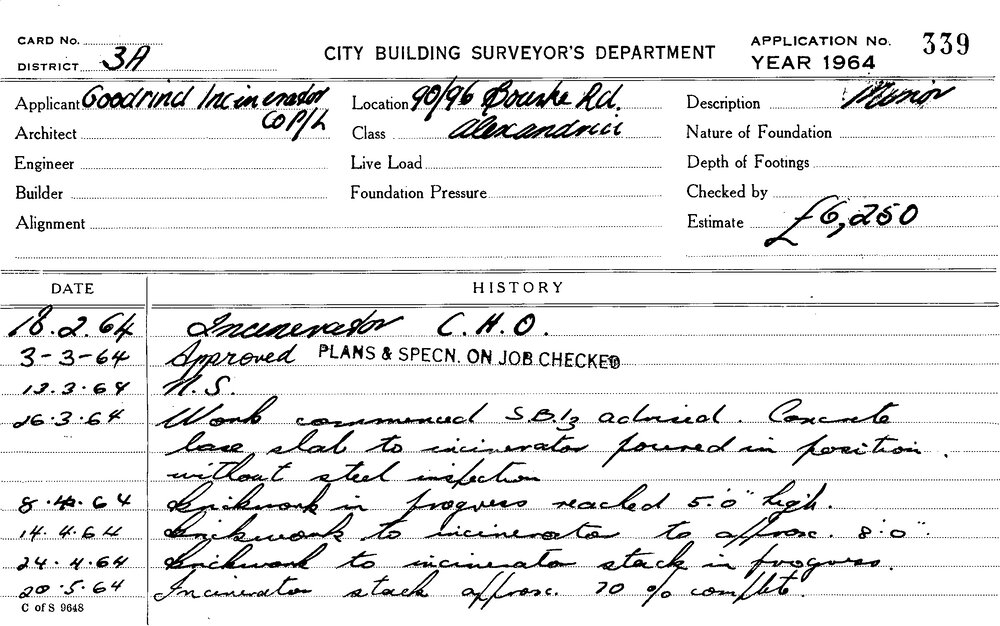 CARD No.
DISTRICT 3A
CITY BUILDING SURVEYOR'S DEPARTMENT
APPLICATION No. 339
YEAR 1964
Applicant Goodrind Incinerator
Co P/L
Location 90/96 Bourke Rd.
Description Minor
Architect
Class Alexandria
Nature of Foundation
Engineer
Live Load
Depth of Footings
Builder
Foundation Pressure
Checked by
Alignment
Estimate £6,250
DATE HISTORY
18.2.64 Incinerator C.H.O.
3-3-64 Approved PLANS & SPECN. ON JOB CHECKED
13.3.64 N.S.
26.3.64 Work commenced S.B.13 advised. Concrete
base slab to incinerator poured in position.
without steel inspection
8.4.64 Brickwork in progress reached 5'.0" high.
14.4.64 Brickwork to incinerator to approx. 8'.0".
24.4.64 Brickwork to incinerator stack in progress.
20.5.64 Incinerator stack approx. 70 % complete.
C of S 9648